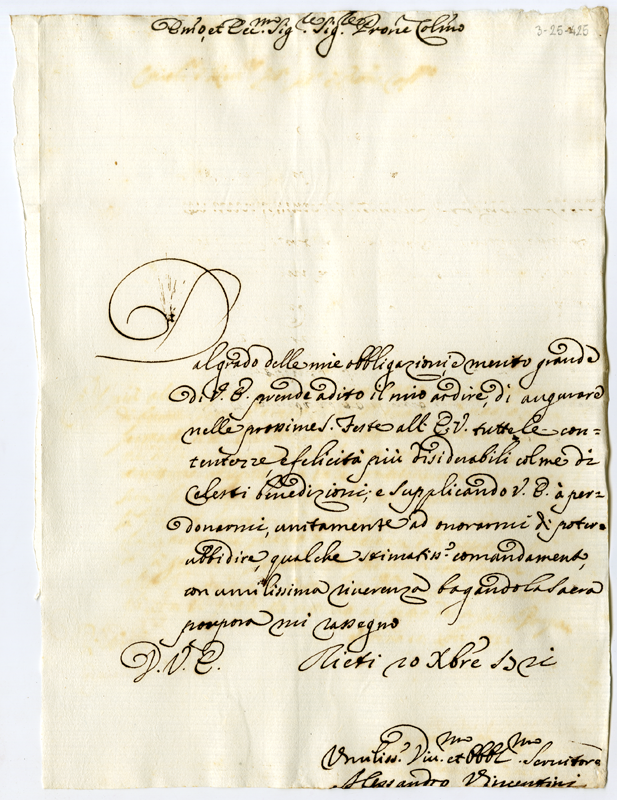 3-25-425
Em̃o, et Rev.mo Sig.re Sig.re Prone Colmo
Dal grado delle mie obbligazioni e merito grande
di V. E. prende adito il mio ardire, di augurare
nelle prossime S. Feste all' E. V. tutte le con=
tentezze, e felicità più disiderabili colme di
Celesti benedizioni; e supplicando V. E. à per=
donarmi, unitamente ad onorarmi di poter
ubbidire, qualche stimatiss.o comandamento,
con umilissima riverenza bagando la Sacra
porpora mi rassegno
D. V. E. Rieti 20 Xbre
Umiliss.o Div.mo et Obbl.mo Servitore
Alessandro Vincentini